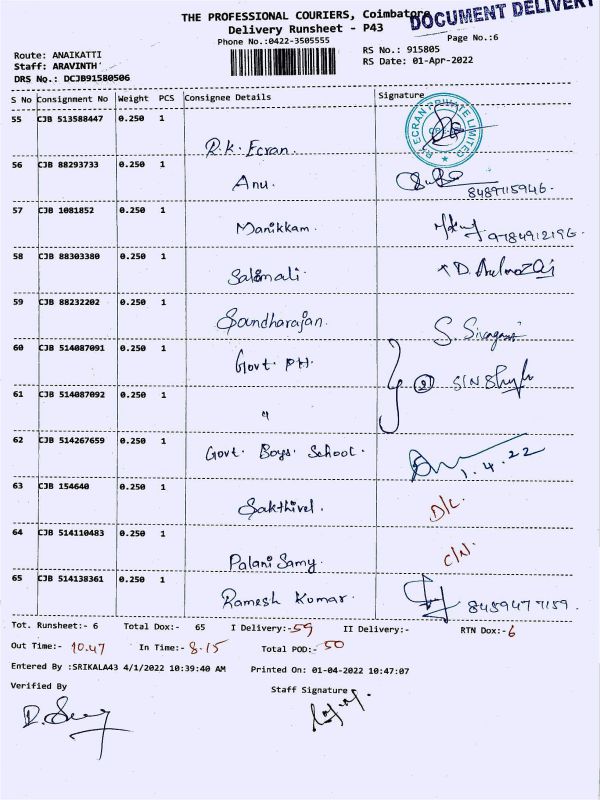 THE PROFESSIONAL COURIERS, Coimbatore
DOCUMENT DELIVERY
Delivery Runsheet - P43
Phone No.:0422-3505555
Page No.:6
Route: ANAIKATTI
RS No.: 915805
Staff: ARAVINTH
RS Date: 01-Apr-2022
DRS No.: DCJB91580506
S No Consignment No Weight PCS Consignee Details Signature
55 CJB 513588447 0.250 1
R.K. Ecran.
R K ECRAN PRIVATE LIMITED
56 CJB 88293733 0.250 1
Anu.
8489715946.
57 CJB 1081852 0.250 1
Manikkam. 9784912196.
58 CJB 88303380 0.250 1
Salomali
59 CJB 88232202 0.250 1
Soundharajan.
60 CJB 514087091 0.250 1
Govt. PH.
61 CJB 514087092 0.250 1
"
62 CJB 514267659 0.250 1
Govt. Boys. School.
1.4.22
63 CJB 154640 0.250 1
Sakthivel. D/L.
64 CJB 514110483 0.250 1
Palani Samy. C/N.
65 CJB 514138361 0.250 1
Ramesh Kumar. 8459477159.
Tot. Runsheet:- 6 Total Dox:- 65 I Delivery:-59 II Delivery:- RTN Dox:-6
Out Time:- 10.47 In Time:- 8.15 Total POD:- 50
Entered By :SRIKALA43 4/1/2022 10:39:40 AM Printed On: 01-04-2022 10:47:07
Verified By
Staff Signature